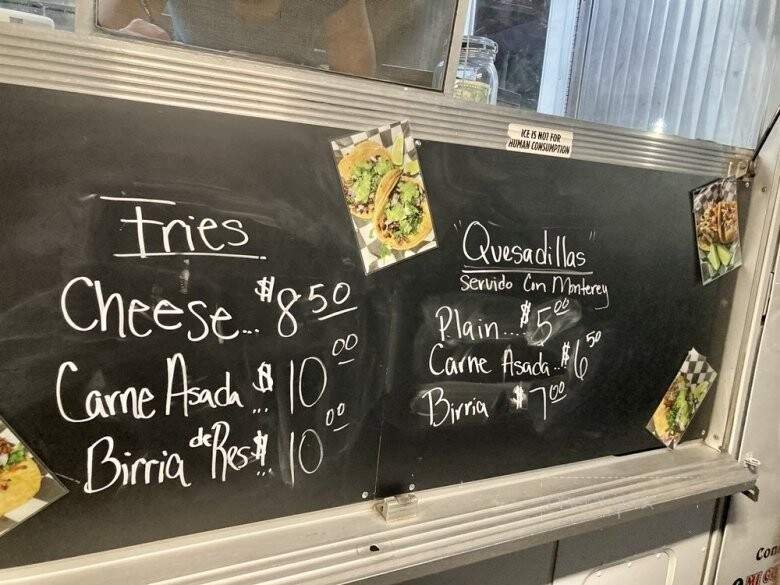 ICE IS NOT FOR
HUMAN CONSUMPTION
Fries
Cheese... $8 50
Carne Asada... $10 00
Birria de Res... $10 00
"Quesadillas"
Servido Con Monterey
Plain... $5 00
Carne Asada.. $6 50
Birria $7 00